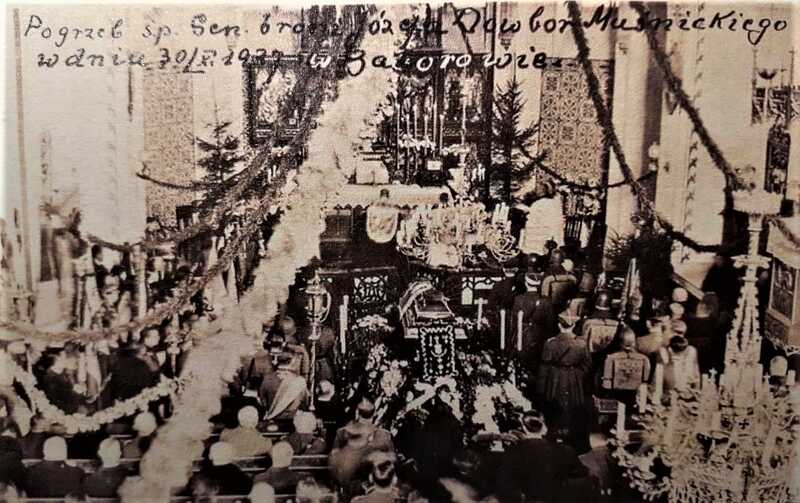 Pogrzeb sp. Gen. broni Józefa Dowbor Muśnickiego
w dniu 30/X. 1937 w Batorowie.